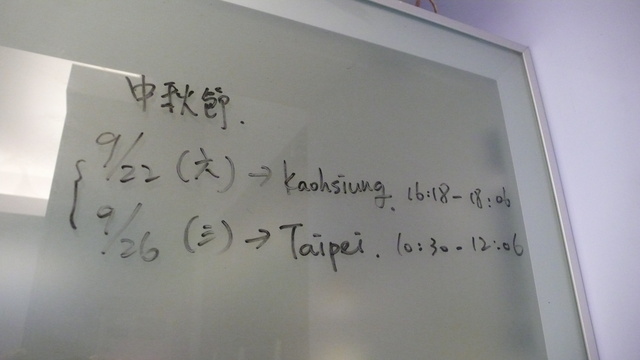 中秋節.
9/22 (六) → Kaohsiung. 16:18-18:06
9/26 (三) → Taipei. 10:30-12:06